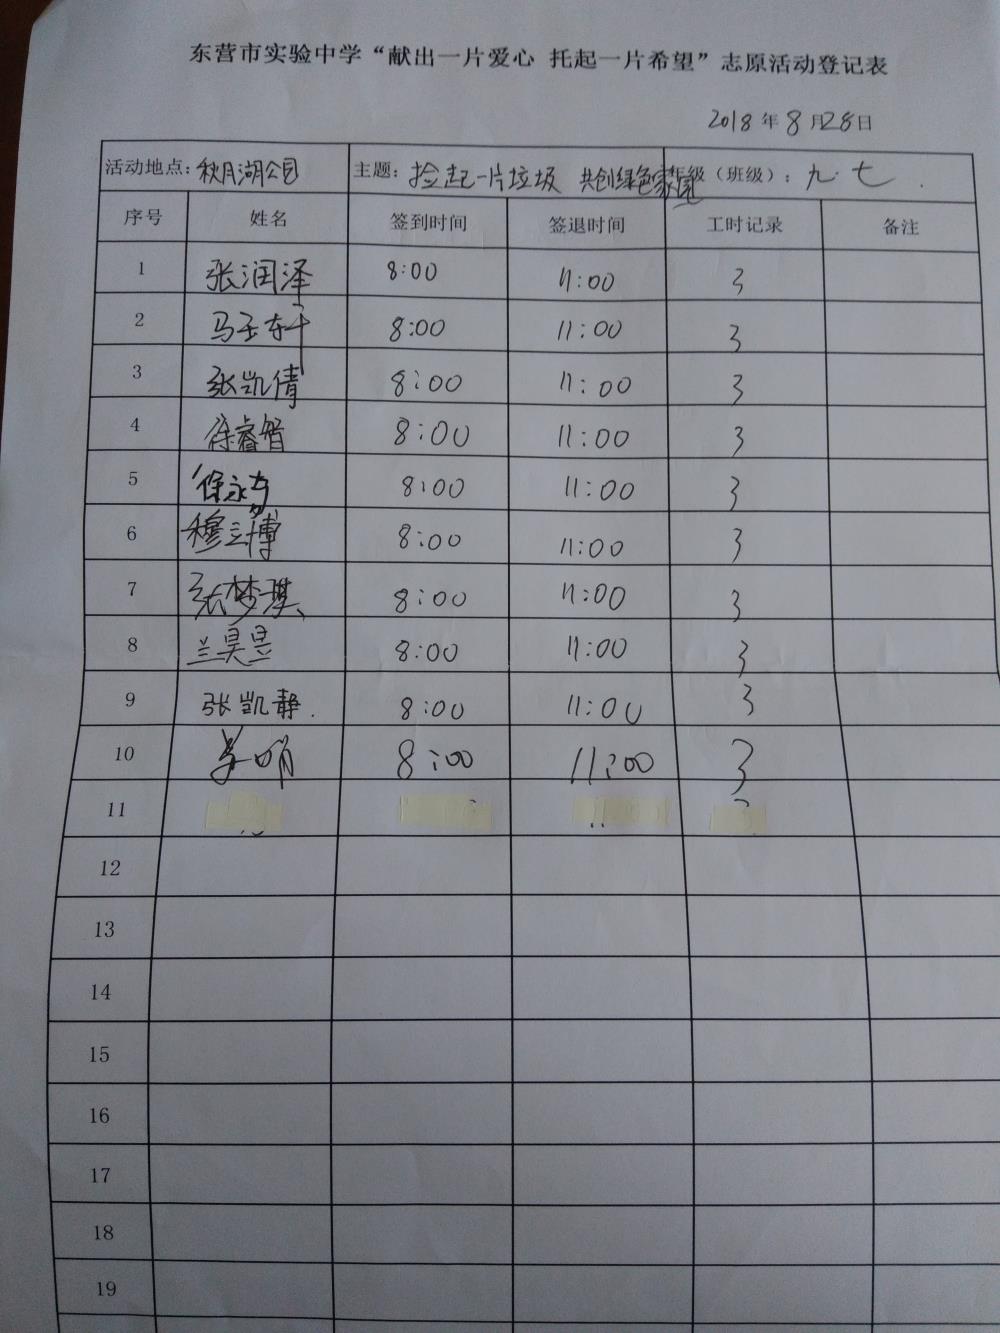 东营市实验中学“献出一片爱心 托起一片希望”志原活动登记表
2018年8月28日
活动地点：秋月湖公园 主题：捡起一片垃圾 共创绿色家园 年级（班级）：九.七.
序号 姓名 签到时间 签退时间 工时记录 备注
1 张润泽 8:00 11:00 3
2 马玉轩 8:00 11:00 3
3 张凯倩 8:00 11:00 3
4 徐睿智 8:00 11:00 3
5 徐永 8:00 11:00 3
6 穆立博 8:00 11:00 3
7 张梦琪 8:00 11:00 3
8 兰昊昱 8:00 11:00 3
9 张凯静. 8:00 11:00 3
10 8:00 11:00 3
11
12
13
14
15
16
17
18
19